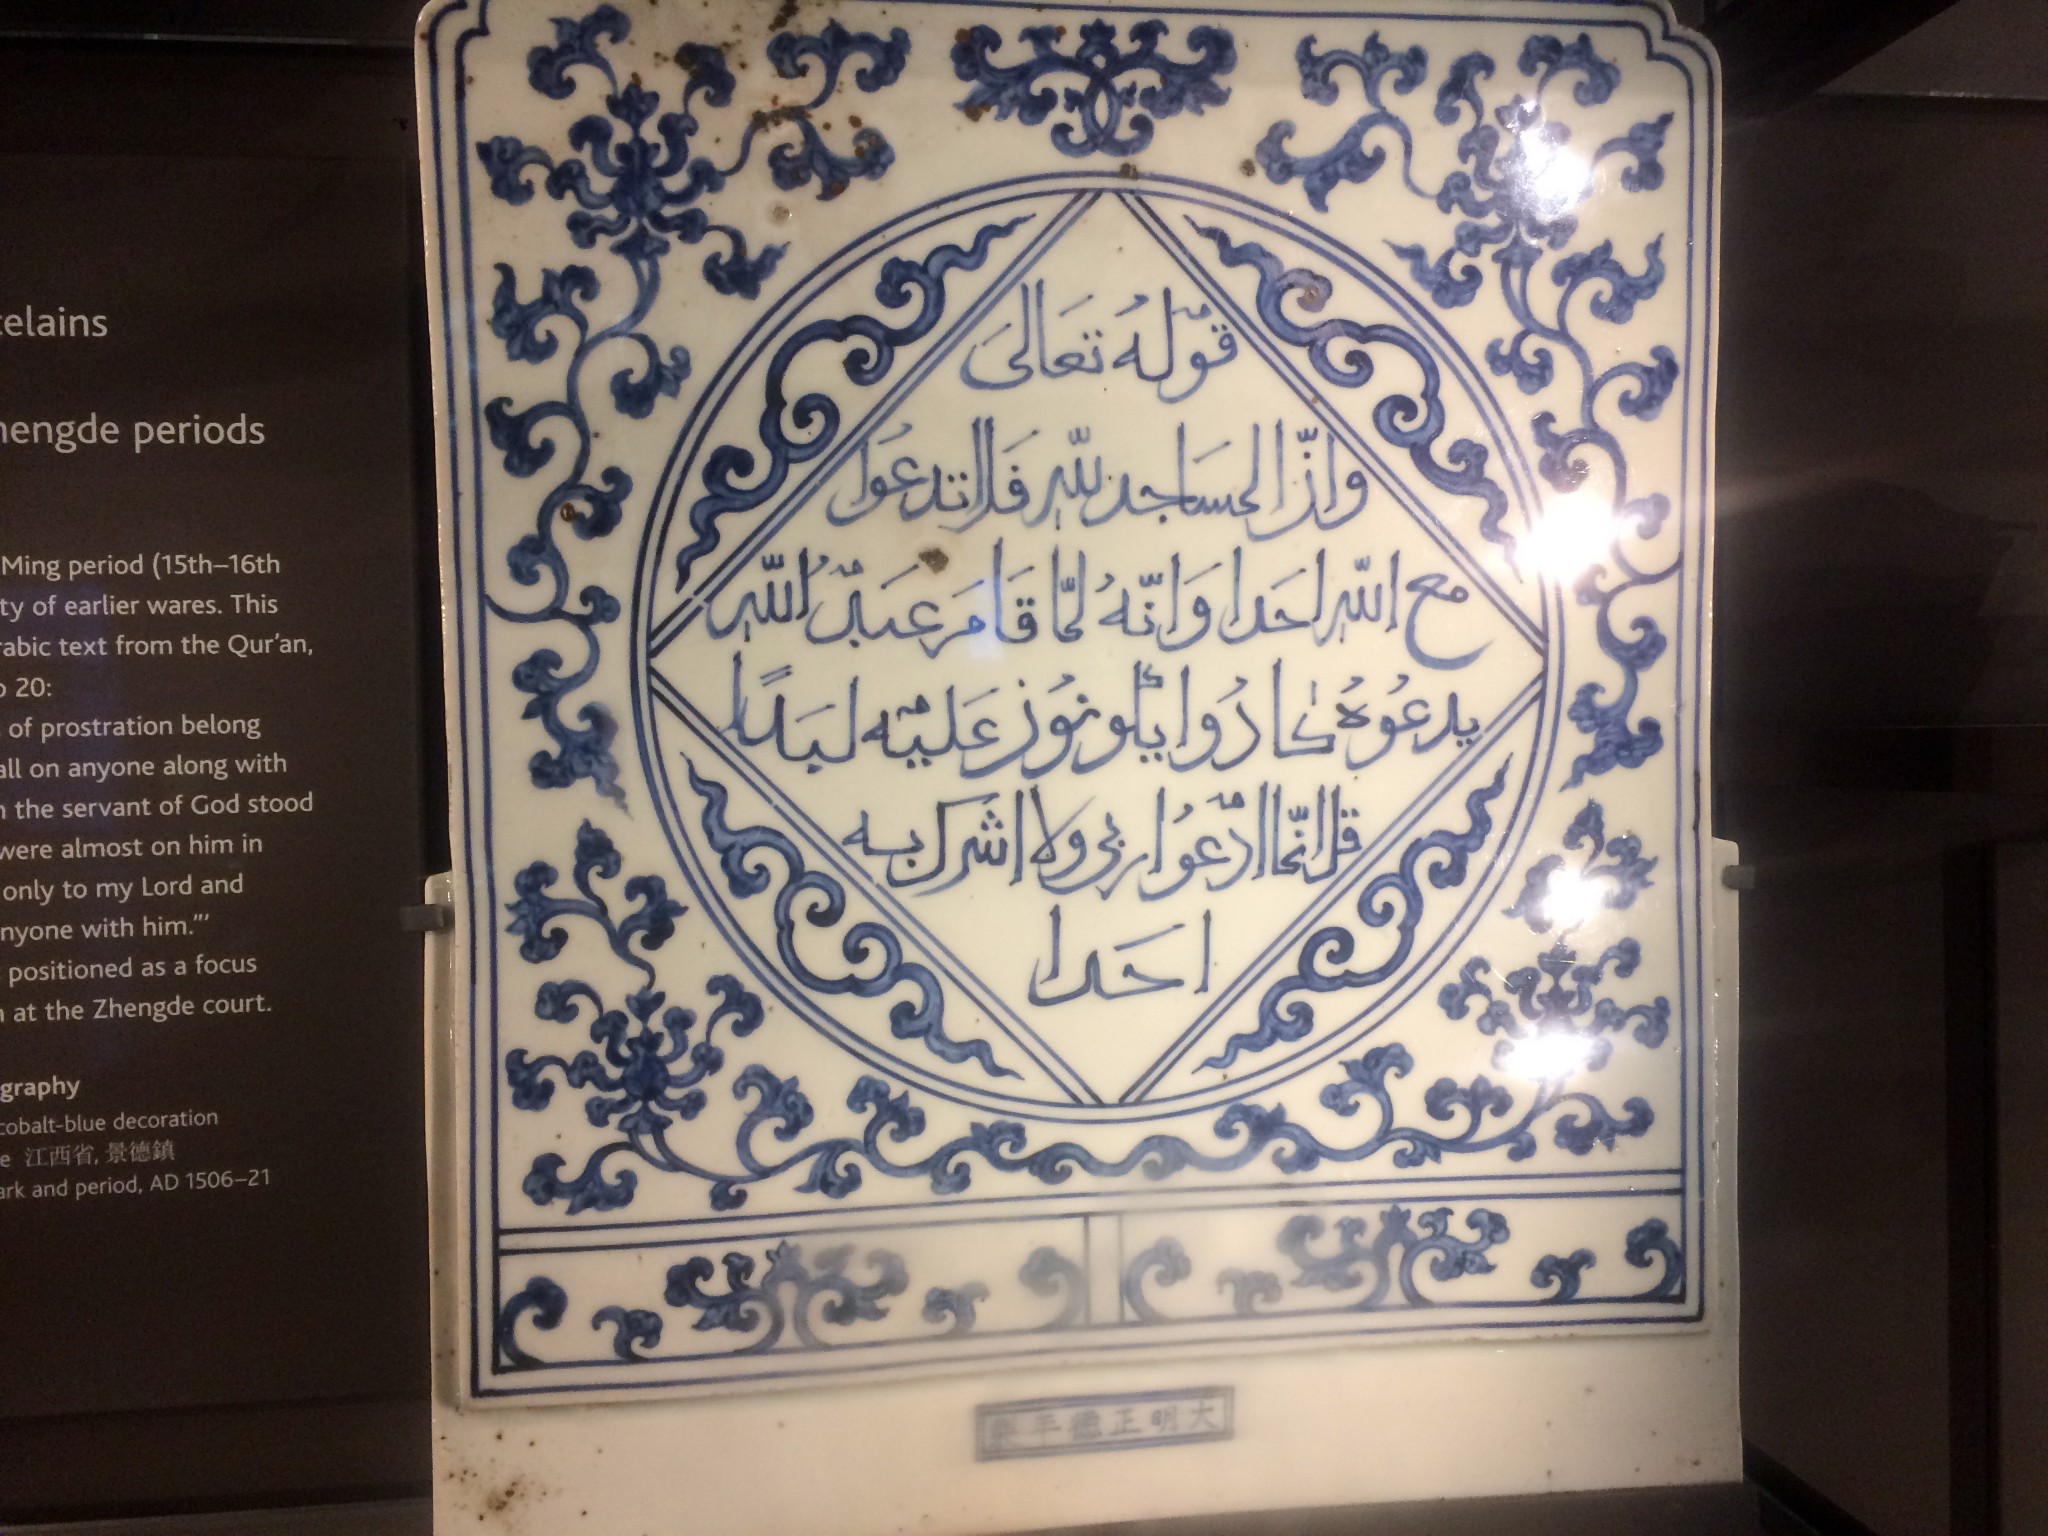 elains
hengde periods
Ming period (15th–16th
ty of earlier wares. This
rabic text from the Qur'an,
o 20:
of prostration belong
all on anyone along with
n the servant of God stood
were almost on him in
only to my Lord and
nyone with him."'
positioned as a focus
n at the Zhengde court.
graphy
cobalt-blue decoration
e 江西省, 景德鎮
ark and period, AD 1506–21
قوله تعالى
وان المساجد لله فلا تدعوا
مع الله احدا وانه لما قام عبد الله
يدعوه كادوا يكونون عليه لبدا
قل انما ادعوا ربي ولا اشرك به
احدا
大明正德年製